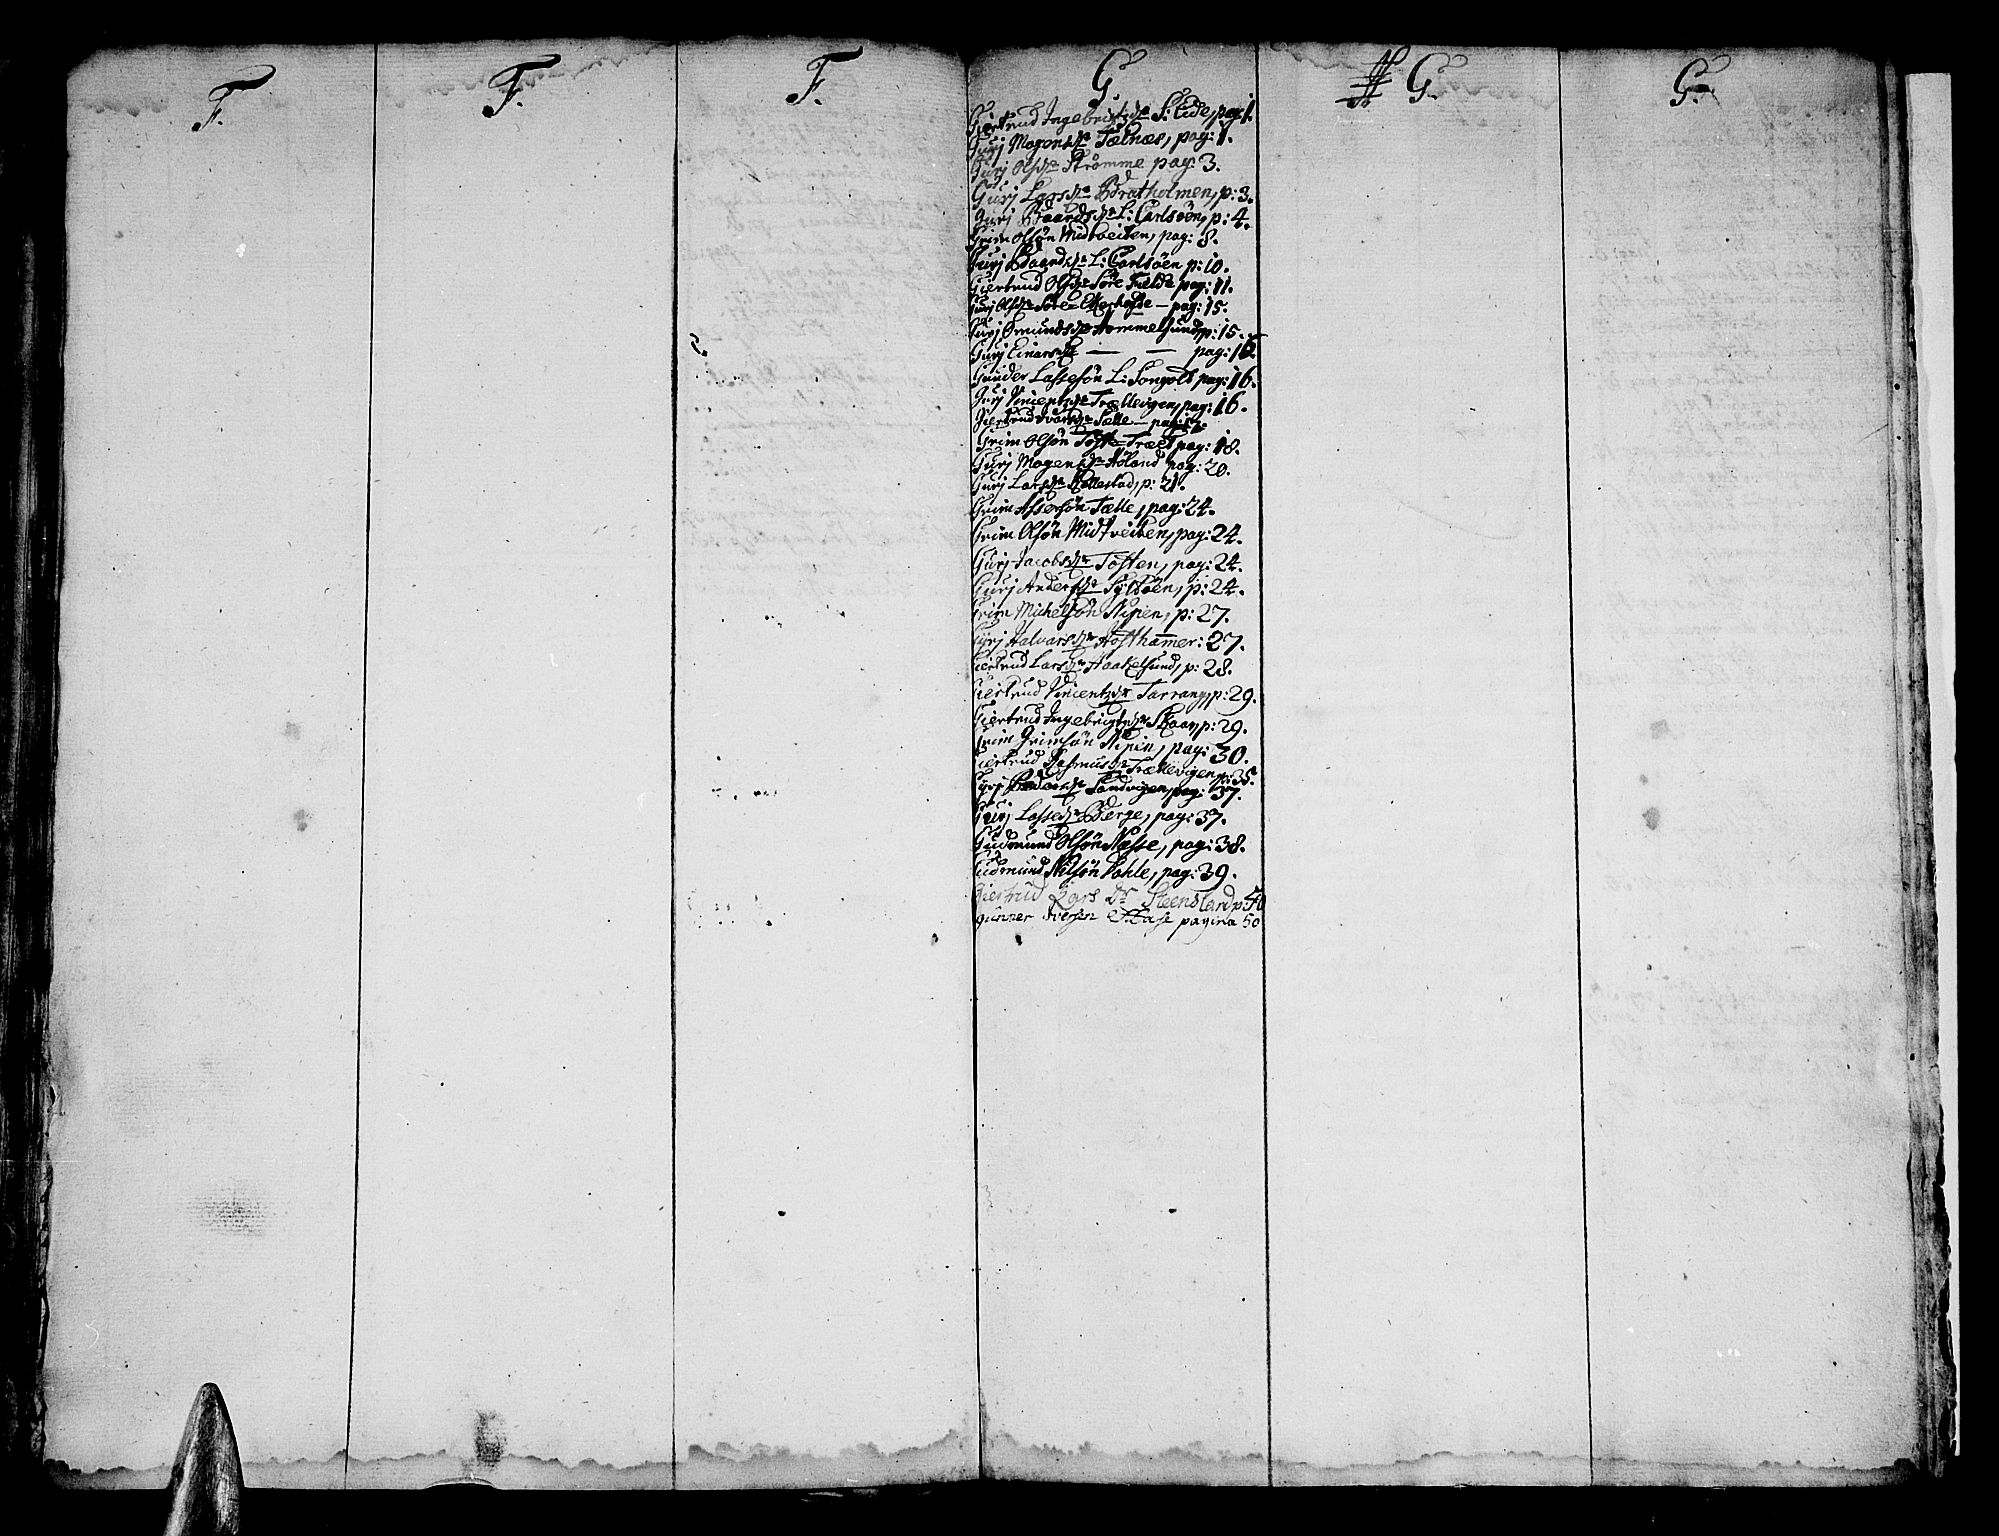 F.
F.
F.
G
G.
G.
Giertrud Ingebrigtsdr S: Eide, pag: 1.
Gurj Mogensdr Telnæs, pag: 1.
Gurj Olsdr Strømme pag: 3.
Gurj Larsdr Bratholmen, p: 3.
Gurj Baardsdr L: Carlsöen, p: 4.
Grim Olsön Midtveiten, pag: 8.
Gurj Baardsdr L: Carlsöen p: 10.
Giertrud Olsdr Söre Fielde pag: 11.
Gurj Olsdr Söre pag: 15.
Gurj Omundsdr Hommelsund, p: 15.
Gurj Einarsdr — — pag: 16.
Gunder Lassesön L: Songolt pag: 16.
Gurj Vincentzdr Trællevigen, pag: 16.
Giertrud Ivarsdr Tælle — pag: 17.
Grim Olsön Toft Træet pag: 18.
Gurj Mogensdr Höland pag: 20.
Gurj Larsdr Kallestad, p: 21.
Grim Assersön Tælle, pag: 24.
Grim Olsön Midtveiten, pag: 24.
Gurj Jacobsdr Toften, pag: 24.
Gurj Andersdr Syltöen, p: 24.
Grim Michelsön Nipen, p: 27.
Gyrj Halvarsdr Hofthammer: 27.
Giertrud Larsdr Haakelsund, p: 28.
Giertrud Vincentzdr Tarrang, p: 29.
Giertrud Ingebrigtsdr Skaar, p: 29.
Grim Grimsön Nipen, pag: 30.
Giertrud Rasmusdr Trællevigen, p: 35.
Gyrj Sandvigen, pag: 37.
Gurj Lassedr Berge, pag: 37.
Gudmund Olsön Næsse, pag: 38.
Gudmund Nilsön Pahle, pag: 39.
Giertrud Lars Dr Steensland p 40
Gunner Iversen pagina 50